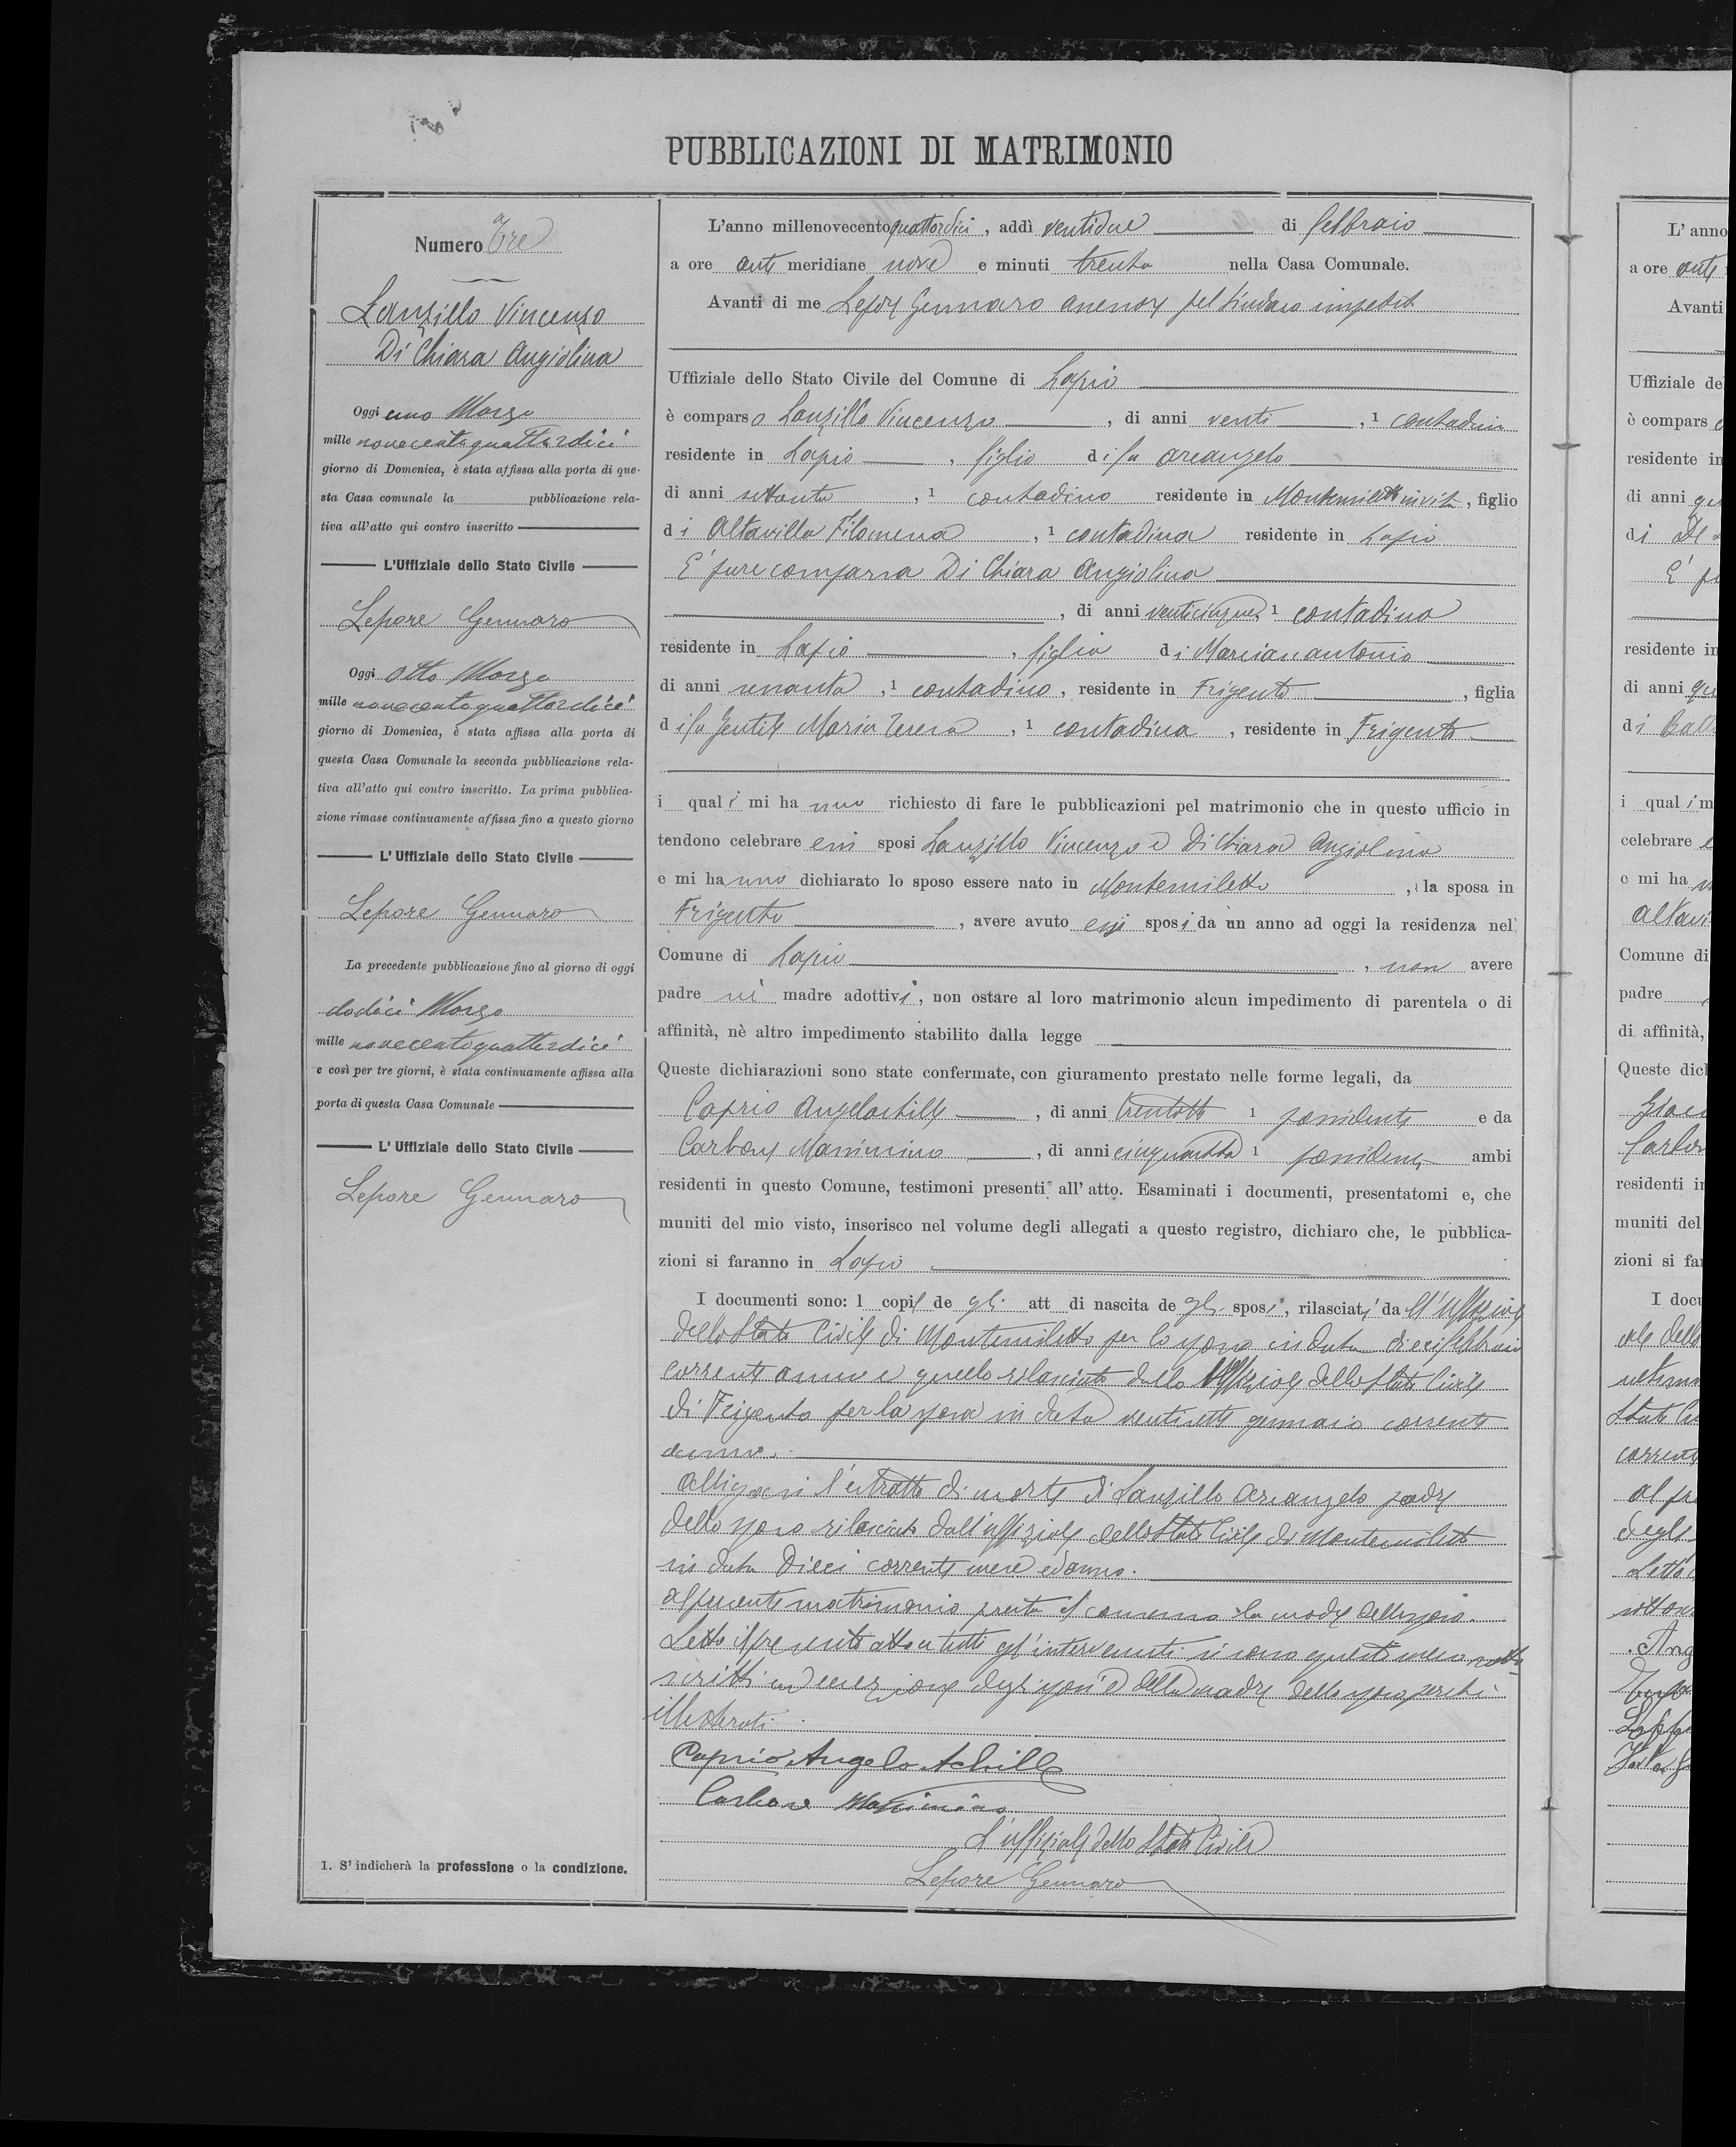 PUBBLICAZIONI DI MATRIMONIO
Numero Tre
Lanzillo Vincenzo
Di Chiara Angiolina
Oggi uno Marzo
mille novecentoquattordici
giorno di Domenica, è stata affissa alla porta di que-
sta Casa comunale la pubblicazione rela-
tiva all'atto qui contro inscritto
L'Uffiziale dello Stato Civile
Lepore Gennaro
Oggi otto Marzo
mille novecentoquattordici
giorno di Domenica, è stata affissa alla porta di
questa Casa Comunale la seconda pubblicazione rela-
tiva all'atto qui contro inscritto. La prima pubblica-
zione rimase continuamente affissa fino a questo giorno
L'Uffiziale dello Stato Civile
Lepore Gennaro
La precedente pubblicazione fino al giorno di oggi
dodici Marzo
mille novecentoquattordici
e così per tre giorni, è stata continuamente affissa alla
porta di questa Casa Comunale
L'Uffiziale dello Stato Civile
Lepore Gennaro
1. S'indicherà la professione o la condizione.
L'anno millenovecentoquattordici, addì ventidue di febbraio
a ore anti meridiane nove e minuti trenta nella Casa Comunale.
Avanti di me Lepore Gennaro assessore pel Sindaco impedito
Uffiziale dello Stato Civile del Comune di Lapio
è comparso Lanzillo Vincenzo, di anni venti, 1 contadino
residente in Lapio, figlio di fu Arcangelo
di anni settanta, 1 contadino residente in Montemiletto in vita, figlio
di Altavilla Filomena, 1 contadina residente in Lapio
E' pure comparsa Di Chiara Angiolina
, di anni venticinque 1 contadina
residente in Lapio, figlia di Marcianantonio
di anni sessanta, 1 contadino, residente in Frigento, figlia
di fu Gentile Maria Teresa, 1 contadina, residente in Frigento
i quali mi hanno richiesto di fare le pubblicazioni pel matrimonio che in questo ufficio in
tendono celebrare essi sposi Lanzillo Vincenzo e Di Chiara Angiolina
e mi hanno dichiarato lo sposo essere nato in Montemiletto, la sposa in
Frigento, avere avuto essi sposi da un anno ad oggi la residenza nel
Comune di Lapio, non avere
padre nè madre adottivi, non ostare al loro matrimonio alcun impedimento di parentela o di
affinità, nè altro impedimento stabilito dalla legge
Queste dichiarazioni sono state confermate, con giuramento prestato nelle forme legali, da
Caprio Angelachille, di anni trentotto 1 possidente e da
Carbone Massimino, di anni 1 possidente ambi
residenti in questo Comune, testimoni presenti all'atto. Esaminati i documenti, presentatomi e, che
muniti del mio visto, inserisco nel volume degli allegati a questo registro, dichiaro che, le pubblica-
zioni si faranno in Lapio
I documenti sono: 1 copie de gli att di nascita de gli sposi, rilasciati da ll'uffiziale
dello Stato Civile di Montemiletto per lo sposo in data dieci febbraio
corrente anno e quello rilasciato dallo Uffiziale dello Stato Civile
di Frigento per la sposa in data ventisette gennaio corrente
anno.
Alligasi l'estratto di morte di Lanzillo Arcangelo padre
dello sposo rilasciato dall'uffiziale dello Stato Civile di Montemiletto
in data Dieci corrente mese ed anno.
Al presente matrimonio presta il consenso la madre dello sposo.
Letto il presente atto a tutti gl'intervenuti si sono questi meco sotto
scritti ad eccezione degli sposi e della madre dello sposo perchè
illetterati.
Caprio Angelo Achille
Carbone Massimino
L'uffiziale dello Stato Civile
Lepore Gennaro
L'anno
a ore anti
Avanti
Uffiziale de
è compars
residente in
di anni
di
E' p
residente in
di anni
di
i quali m
celebrare
e mi ha
Altavi
Comune di
padre
di affinità,
Queste dich
Carbon
residenti in
muniti del
zioni si fa
I docu